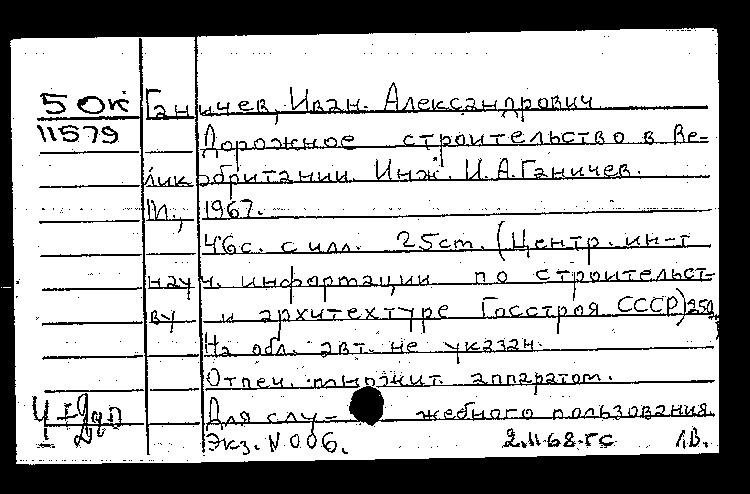 5 ОК Ганичев, Иван. Александрович
11579 Дорожное строительство в Ве-
ликобритании. Инж. И.А.Ганичев.
М., 1967.
46с. с илл. 25ст. (Центр. ин-т
науч. информации по строительст-
ву и архитехтуре Госстроя СССР) 250
На обл. авт. не указан.
Отпеч. множит. аппаратом.
Для слу- жебного пользования.
Экз. N 006. 2.11.68-гс Л.В.